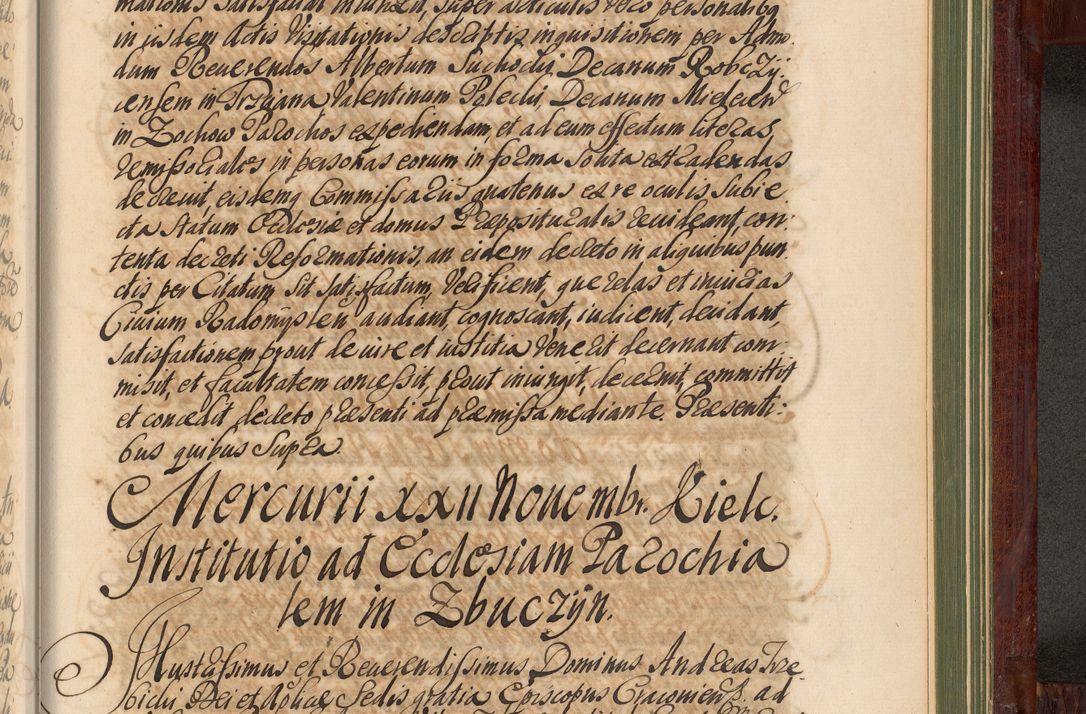 mationis satisfactat in iunxit, super articulis vero personalibq
in iisdem Actis Visitationis descriptis inquisitionem per Admo
dum Reuerendos Albertum Suchocki, Decanum Robczÿ:
censem in Trzciana Valentinum Poleckj, Decanum Mielecen
in Zochow Parochos expediendam, et ad eum effectum literas
remissoriales in personas eorum in forma solita extradendas
decreuit, eisdemq Commissarijs, quatenus ex re oculis subie
cta statum Ecclesiæ et domus Præpositualis reuideant, con:
tenta decreti Reformationis, an eidem decreto in aliquibus pun
ctis per Citatum sit satisfactum, Verificent, querelas et iniurias
Ciuium Radomÿslen audiant, cognoscant, iudicent, decidant,
satisfactionem prout de iure et iustitia Venerit decernant com:
misit, et facultatem concessit, prout iniungit, decernit, committit
et concedit decreto præsenti ad præmissa mediante. Præsenti:
bus quibus Supra.
Mercurii XXII Nouembr. Kielc.
Institutio ad Ecclesiam Parochia
lem in Zbuczÿn.
Illustrissimus et Reuerendissimus Dominus Andreas Trze
bicki, Dei et Aplicæ Sedis gratia Episcopus Cracouiens. ad